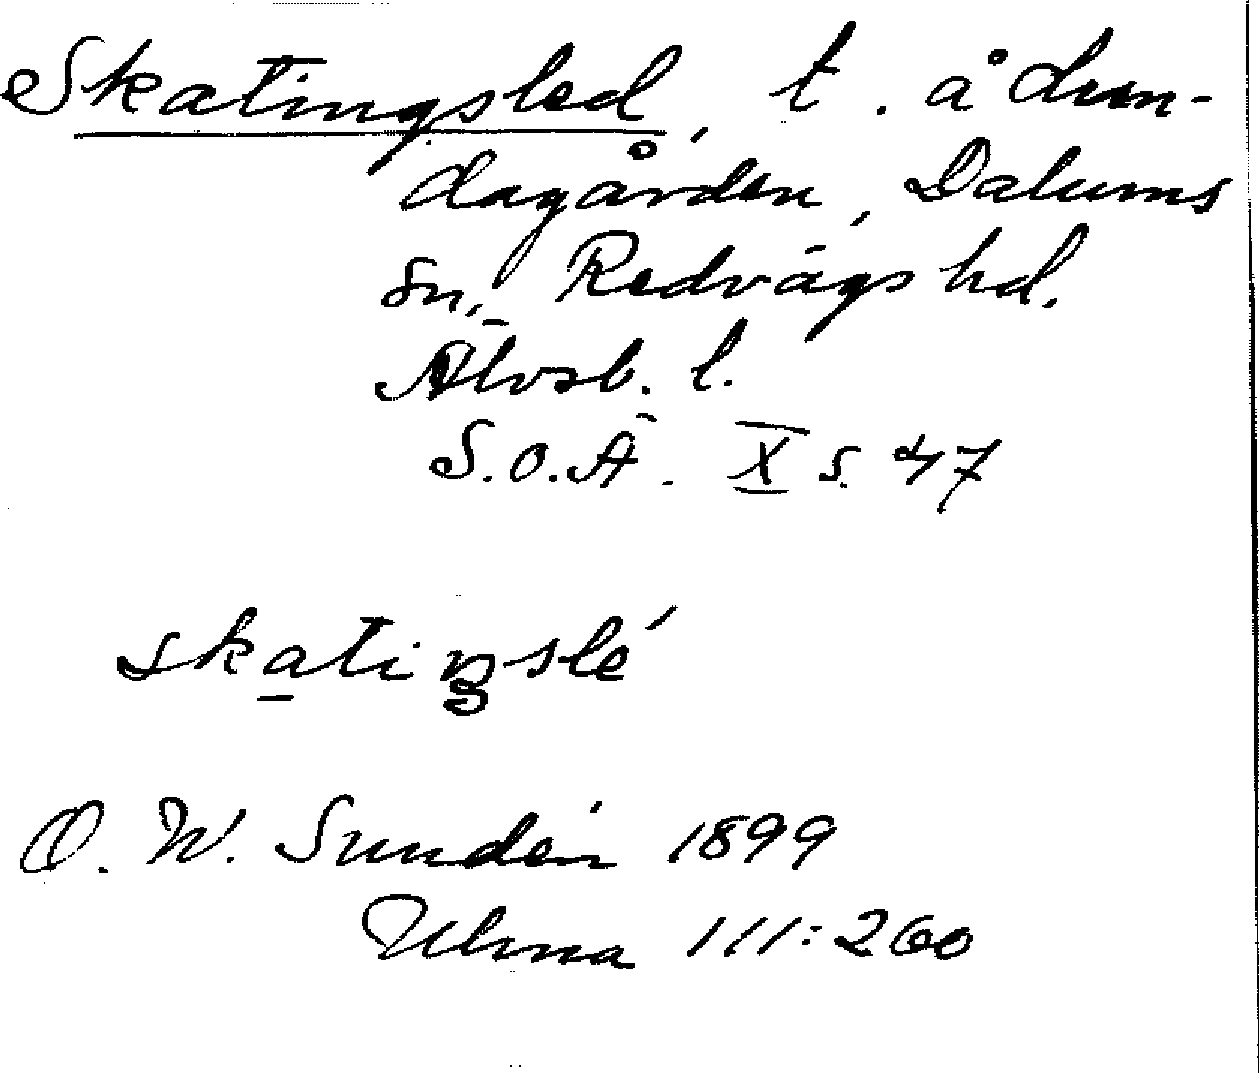 Skatingsled, t. å Lun-
dagården, Dalums
sn, Redvägs hd.
Älvsb. l.
S.O.Ä. X s. 47
skatiŋslé
O. W. Sundén 1899
Ulma 111:260